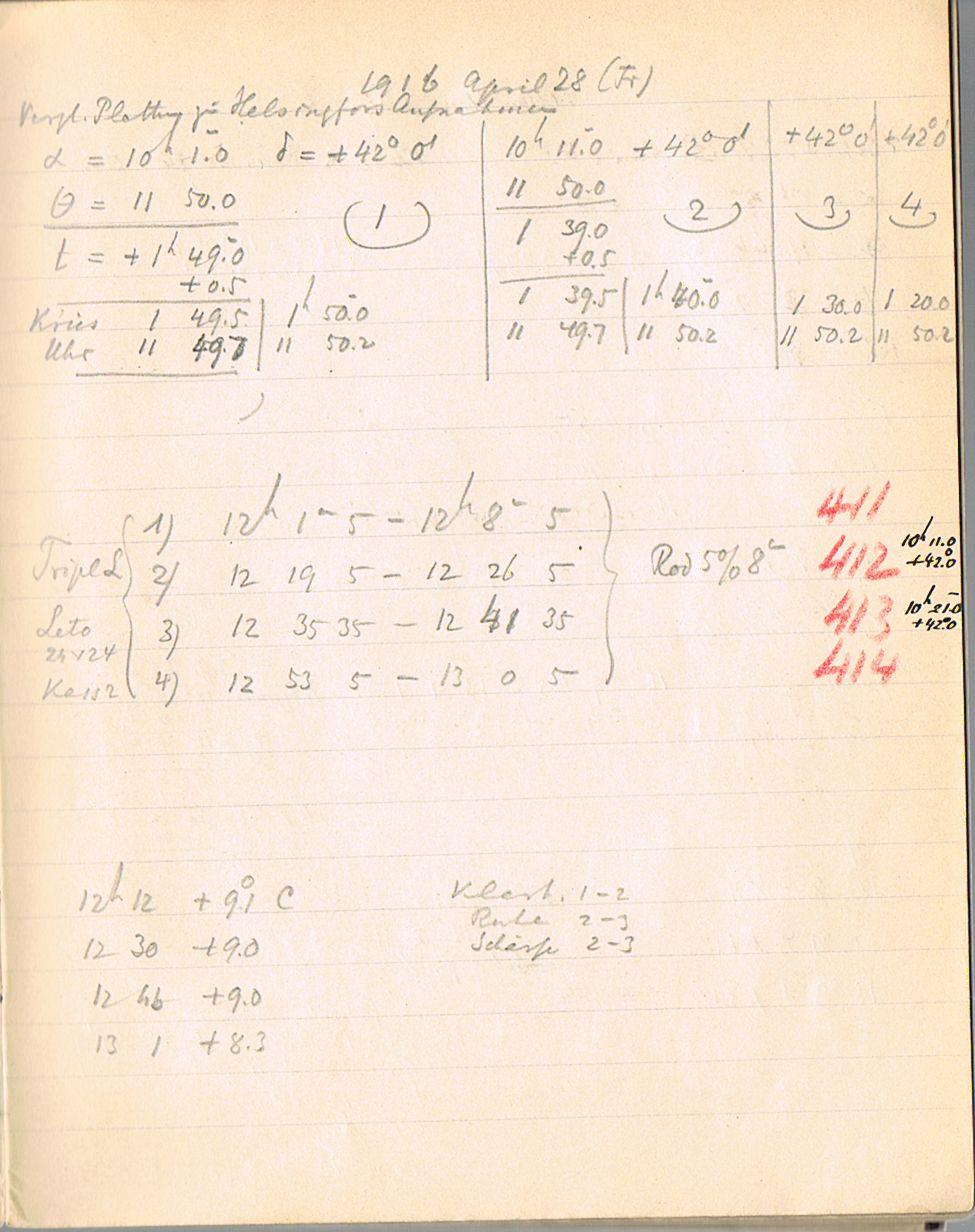 1916 April 28 (Fr)
Vergl. Platten zu Helsingfors Aufnahmen
α = 10h 1.0 δ = +42° 0' 10h 11.0 +42° 0' +42° 0' +42° 0'
θ = 11 50.0 1 11 50.0 2 3 4
t = +1h 49.0 1 39.0
+0.5 +0.5
Kreis 1 49.5 1h 50.0 1 39.5 1h 40.0 1 30.0 1 20.0
Uhr 11 49.7 11 50.2 11 49.7 11 50.2 11 50.2 11 50.2
1) 12h 1m 5 – 12h 8m 5 411
Tripl. 2) 12 19 5 – 12 26 5 Rod 50/0 8m 412 10h 11.0 +42.0
Leto 3) 12 35 35 – 12 41 35 413 10h 21.0 +42.0
24x24
4) 12 53 5 – 13 0 5 414
12h 12 +9.1 C Klarh. 1–2
Ruhe 2–3
12 30 +9.0 Schärfe 2–3
12 46 +9.0
13 1 +8.3